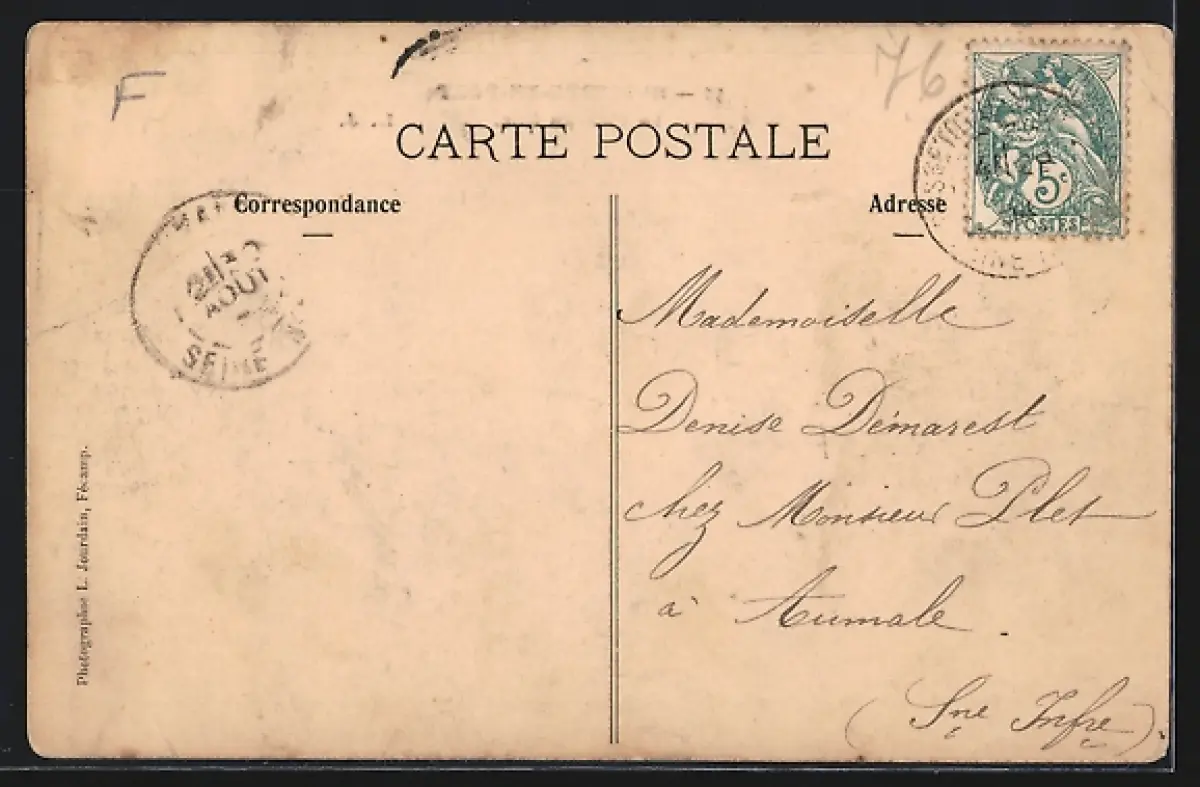 F
76
CARTE POSTALE
Correspondance
Adresse
5c
POSTES
AOUT
SEINE
Mademoiselle
Denise Démarest
chez Monsieur Plet
à Aumale.
(Sne Infre)
Photographie L. Jourdain, Fécamp.